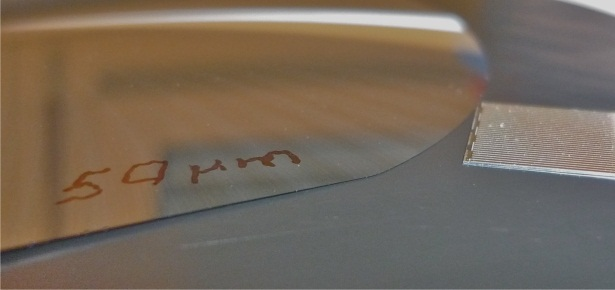 50 µm